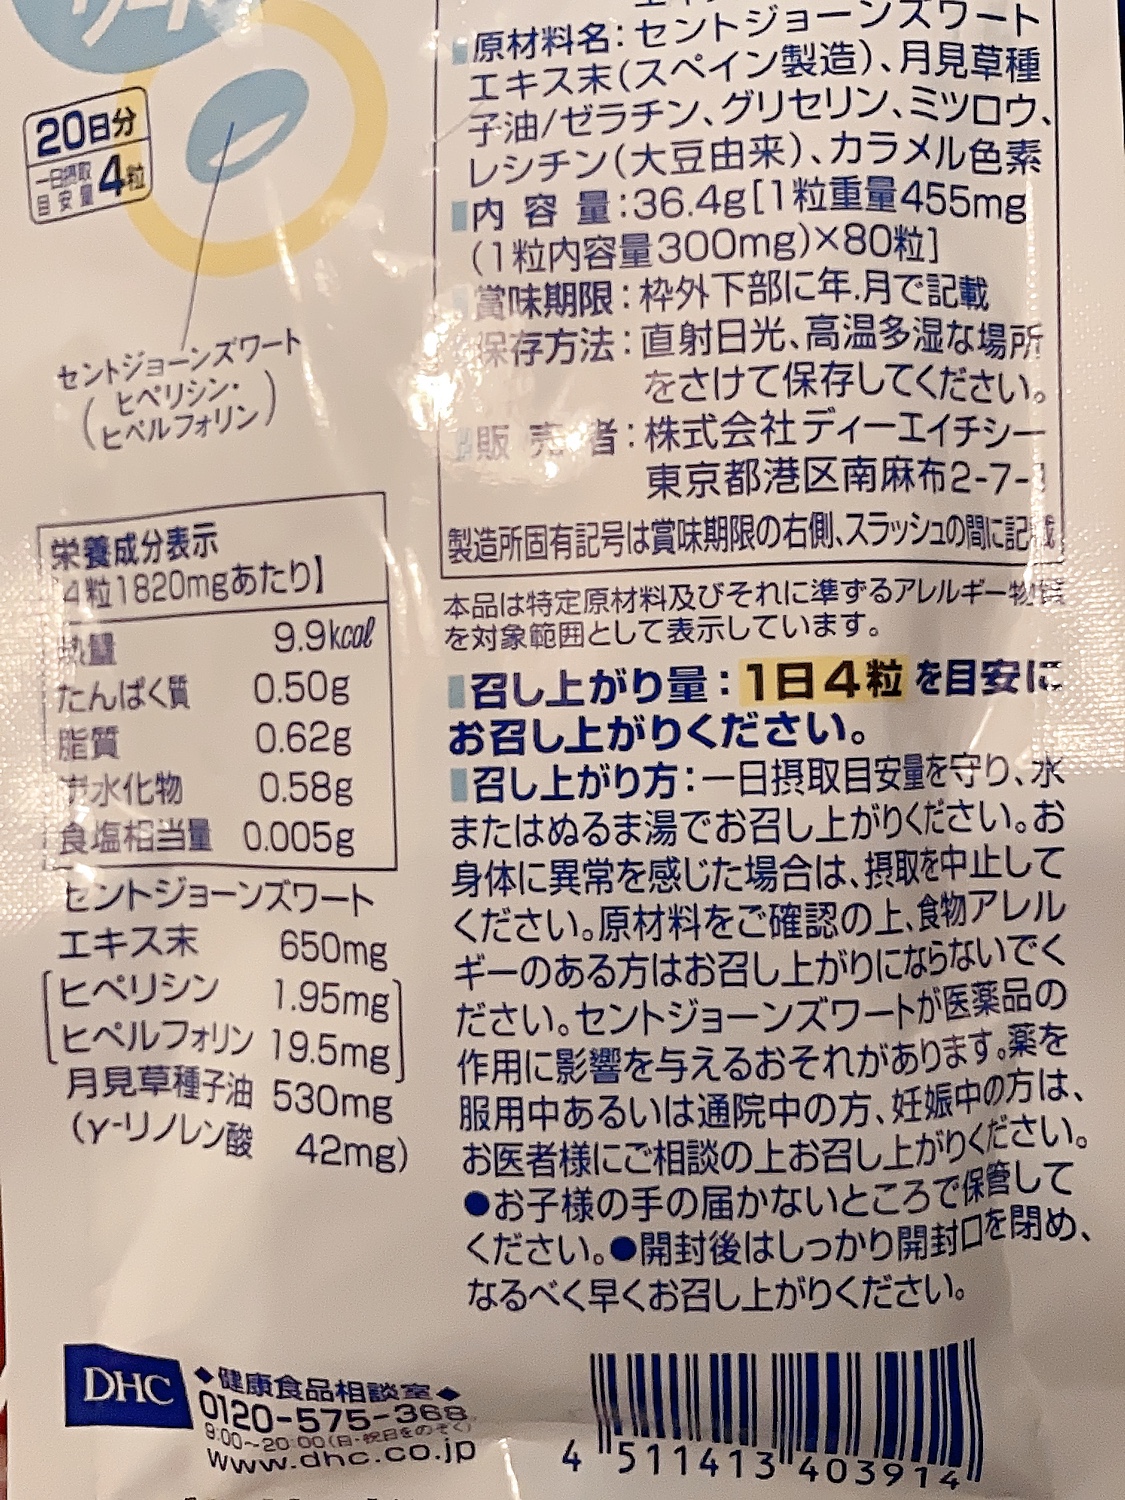 20日分
一日摂取
目安量 4粒
セントジョーンズワート
(ヒペリシン・
ヒペルフォリン)
栄養成分表示
[4粒1820mgあたり]
熱量 9.9kcal
たんぱく質 0.50g
脂質 0.62g
炭水化物 0.58g
食塩相当量 0.005g
セントジョーンズワート
エキス末 650mg
[ヒペリシン 1.95mg]
[ヒペルフォリン 19.5mg]
月見草種子油 530mg
(γ-リノレン酸 42mg)
原材料名:セントジョーンズワート
エキス末(スペイン製造)、月見草種
子油/ゼラチン、グリセリン、ミツロウ、
レシチン(大豆由来)、カラメル色素
内容量:36.4g[1粒重量455mg
(1粒内容量300mg)×80粒]
賞味期限:枠外下部に年.月で記載
保存方法:直射日光、高温多湿な場所
をさけて保存してください。
販売者:株式会社ディーエイチシー
東京都港区南麻布2-7-1
製造所固有記号は賞味期限の右側、スラッシュの間に記載
本品は特定原材料及びそれに準ずるアレルギー物質
を対象範囲として表示しています。
召し上がり量:1日4粒を目安に
お召し上がりください。
召し上がり方:一日摂取目安量を守り、水
またはぬるま湯でお召し上がりください。お
身体に異常を感じた場合は、摂取を中止して
ください。原材料をご確認の上、食物アレル
ギーのある方はお召し上がりにならないでく
ださい。セントジョーンズワートが医薬品の
作用に影響を与えるおそれがあります。薬を
服用中あるいは通院中の方、妊娠中の方は、
お医者様にご相談の上お召し上がりください。
●お子様の手の届かないところで保管して
ください。●開封後はしっかり開封口を閉め、
なるべく早くお召し上がりください。
DHC
◆健康食品相談室◆
0120-575-368
9:00〜20:00(日・祝日をのぞく)
www.dhc.co.jp
4 511413 403914